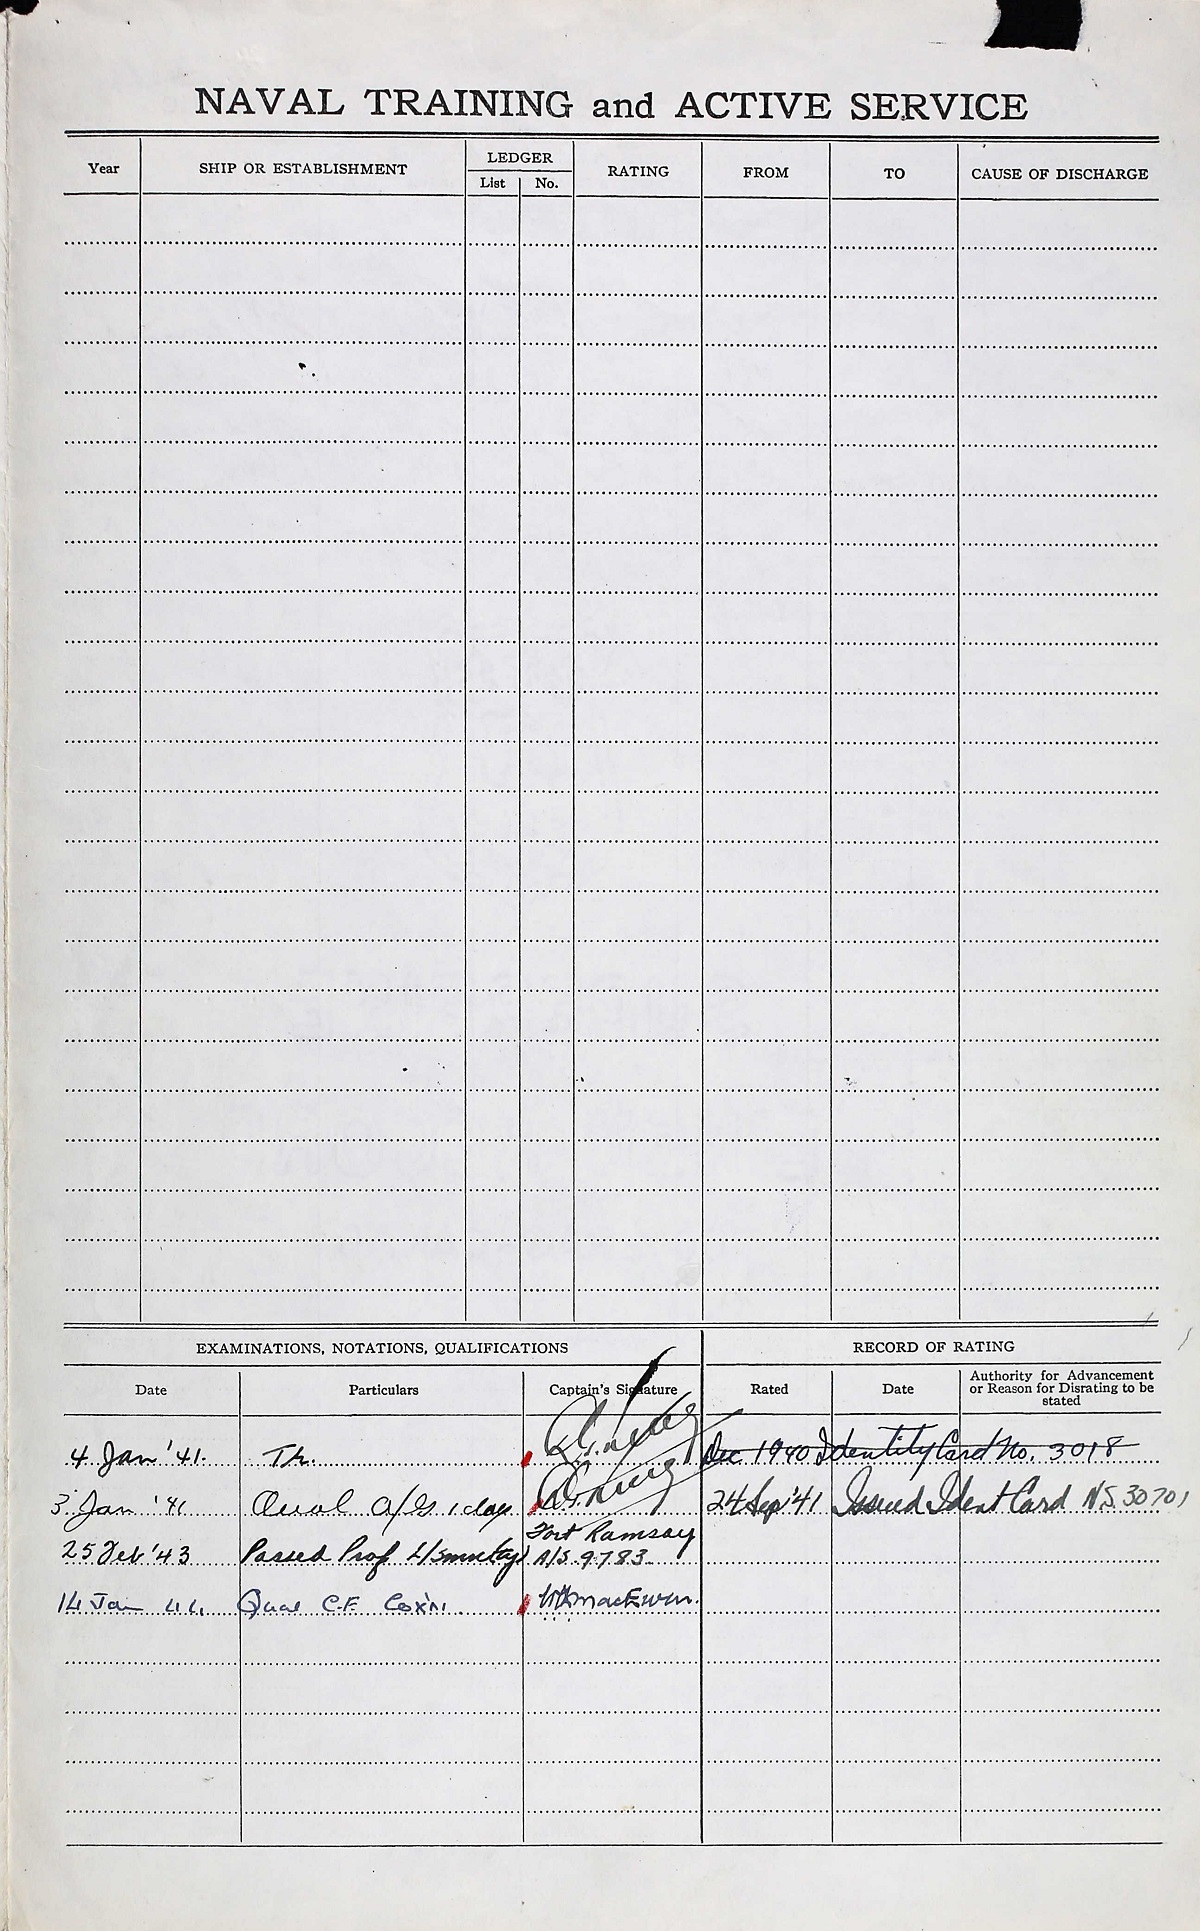 NAVAL TRAINING and ACTIVE SERVICE
Year SHIP OR ESTABLISHMENT LEDGER List No. RATING FROM TO CAUSE OF DISCHARGE
EXAMINATIONS, NOTATIONS, QUALIFICATIONS
Date Particulars Captain's Signature
4 Jan '41. Tr.
3 Jan '41 Qual A/G 1 day
25 Feb '43 Passed Prof. Fort Ramsay A/S 9783
14 Jan 44 Qual C.F. Cox'n. MacEwen.
RECORD OF RATING
Rated Date Authority for Advancement or Reason for Disrating to be stated
Dec 1940 Identity Card No. 3018
24 Sep '41 Issued Ident Card N.S. 30701